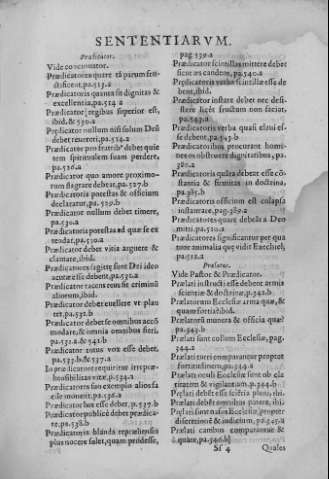 SENTENTIARVM.
Prædicator.
Vide concionator.
Prædicatores quare tā parum fru-
ctificent, pa.513.a
Prædicatoris quanta sit dignitas &
excellentia, pa.514.a
Prædicator regibus superior est,
ibid. & 530.a
Prædicator nullum nisi solum Deū
debet reuereri, pa.
Prædicator pro fratrib° debet quie
tem spiritualem suam perdere,
pa.526.a
Prædicator quo amore proximo-
rum flagrare debeat, pa.527.b
Prædicatoris potestas & officium
declaratur, pa.529.b
Prædicator nullum debet timere,
pa.530.a
Prædicatoris potestas ad quæ se ex
tendat, pa.530.a
Prædicator debet vitia arguere &
clamare, ibid.
Prædicatores sagittæ sunt Dei ideo
acutæ esse debent, pa.532.a
Prædicator tacens reus fit criminū
alienorum, ibid.
Prædicator debet euellere vt plan
tet, pa.532.b
Prædicator debet se omnibus accō
modare, & omnia omnibus fieri,
pa.532.a & 542.b
Prædicator totus vox esse debet,
pa.533.b. & 537.a
In prædicatore requiritur irrepræ-
hensibilitas vitæ, p.534.a
Prædicatores suo exemplo alios fa
cile mouent, pa.536.a
Prædicator lux esse debet, p.537.b
Prædicator publicè debet prædica-
re, pa.538.b
Prædicatoris blanda repræhensio
plus nocere solet, quam prodesse,
pag.539.a
Prædicator scintillas mittere debet
sicut æs candens, pa.540.a
Prædicatoris verba scintillæ esse de
bent, ibid.
Prædicator instare debet nec desi-
stere licèt fructum non faciat,
pa.543.a
Prædicatoris verba quasi claui es-
se debent, pa.543.b
Prædicatoribus procurant homi-
nes obstruere dignitatibus, pa.
Prædicatoris quāta debeat esse cō
stantia & firmitas in doctrina,
pa.385.b
Prædicatoris officium est colapsa
instaurare, pag.389.a
Prædicatores quare debeāt a Deo
mitti, pa.510.a
Prædicatores significantur per qua
tuor animalia quę vidit Ezechiel,
pa.512.a
Prælatus.
Vide Pastor & Prædicator.
Prælati instructi esse debent armis
scientiæ & doctrinæ, p.342.b
Prælatorum Ecclesiæ arma quæ, &
quam fortia? ibid.
Prælatorū munera & officia quæ?
pa.343.b
Prælati sunt collum Ecclesiæ, pag.
344.a
Prælati turri comparantur propter
fortitudinem, pa.344.a
Prælati oculi Ecclesiæ sunt ob cla
ritatem & vigilantiam, p.344.b
Prælati debēt esse pleni sciētia, ibi.
Prælati debēt omnibus patere, ibi.
Prælati sunt nasus Ecclesiæ, propter
discretione & iudicium, pa.345.a
Prælati canibus comparantur &
quare, pa.346.b
Sf 4
Quales